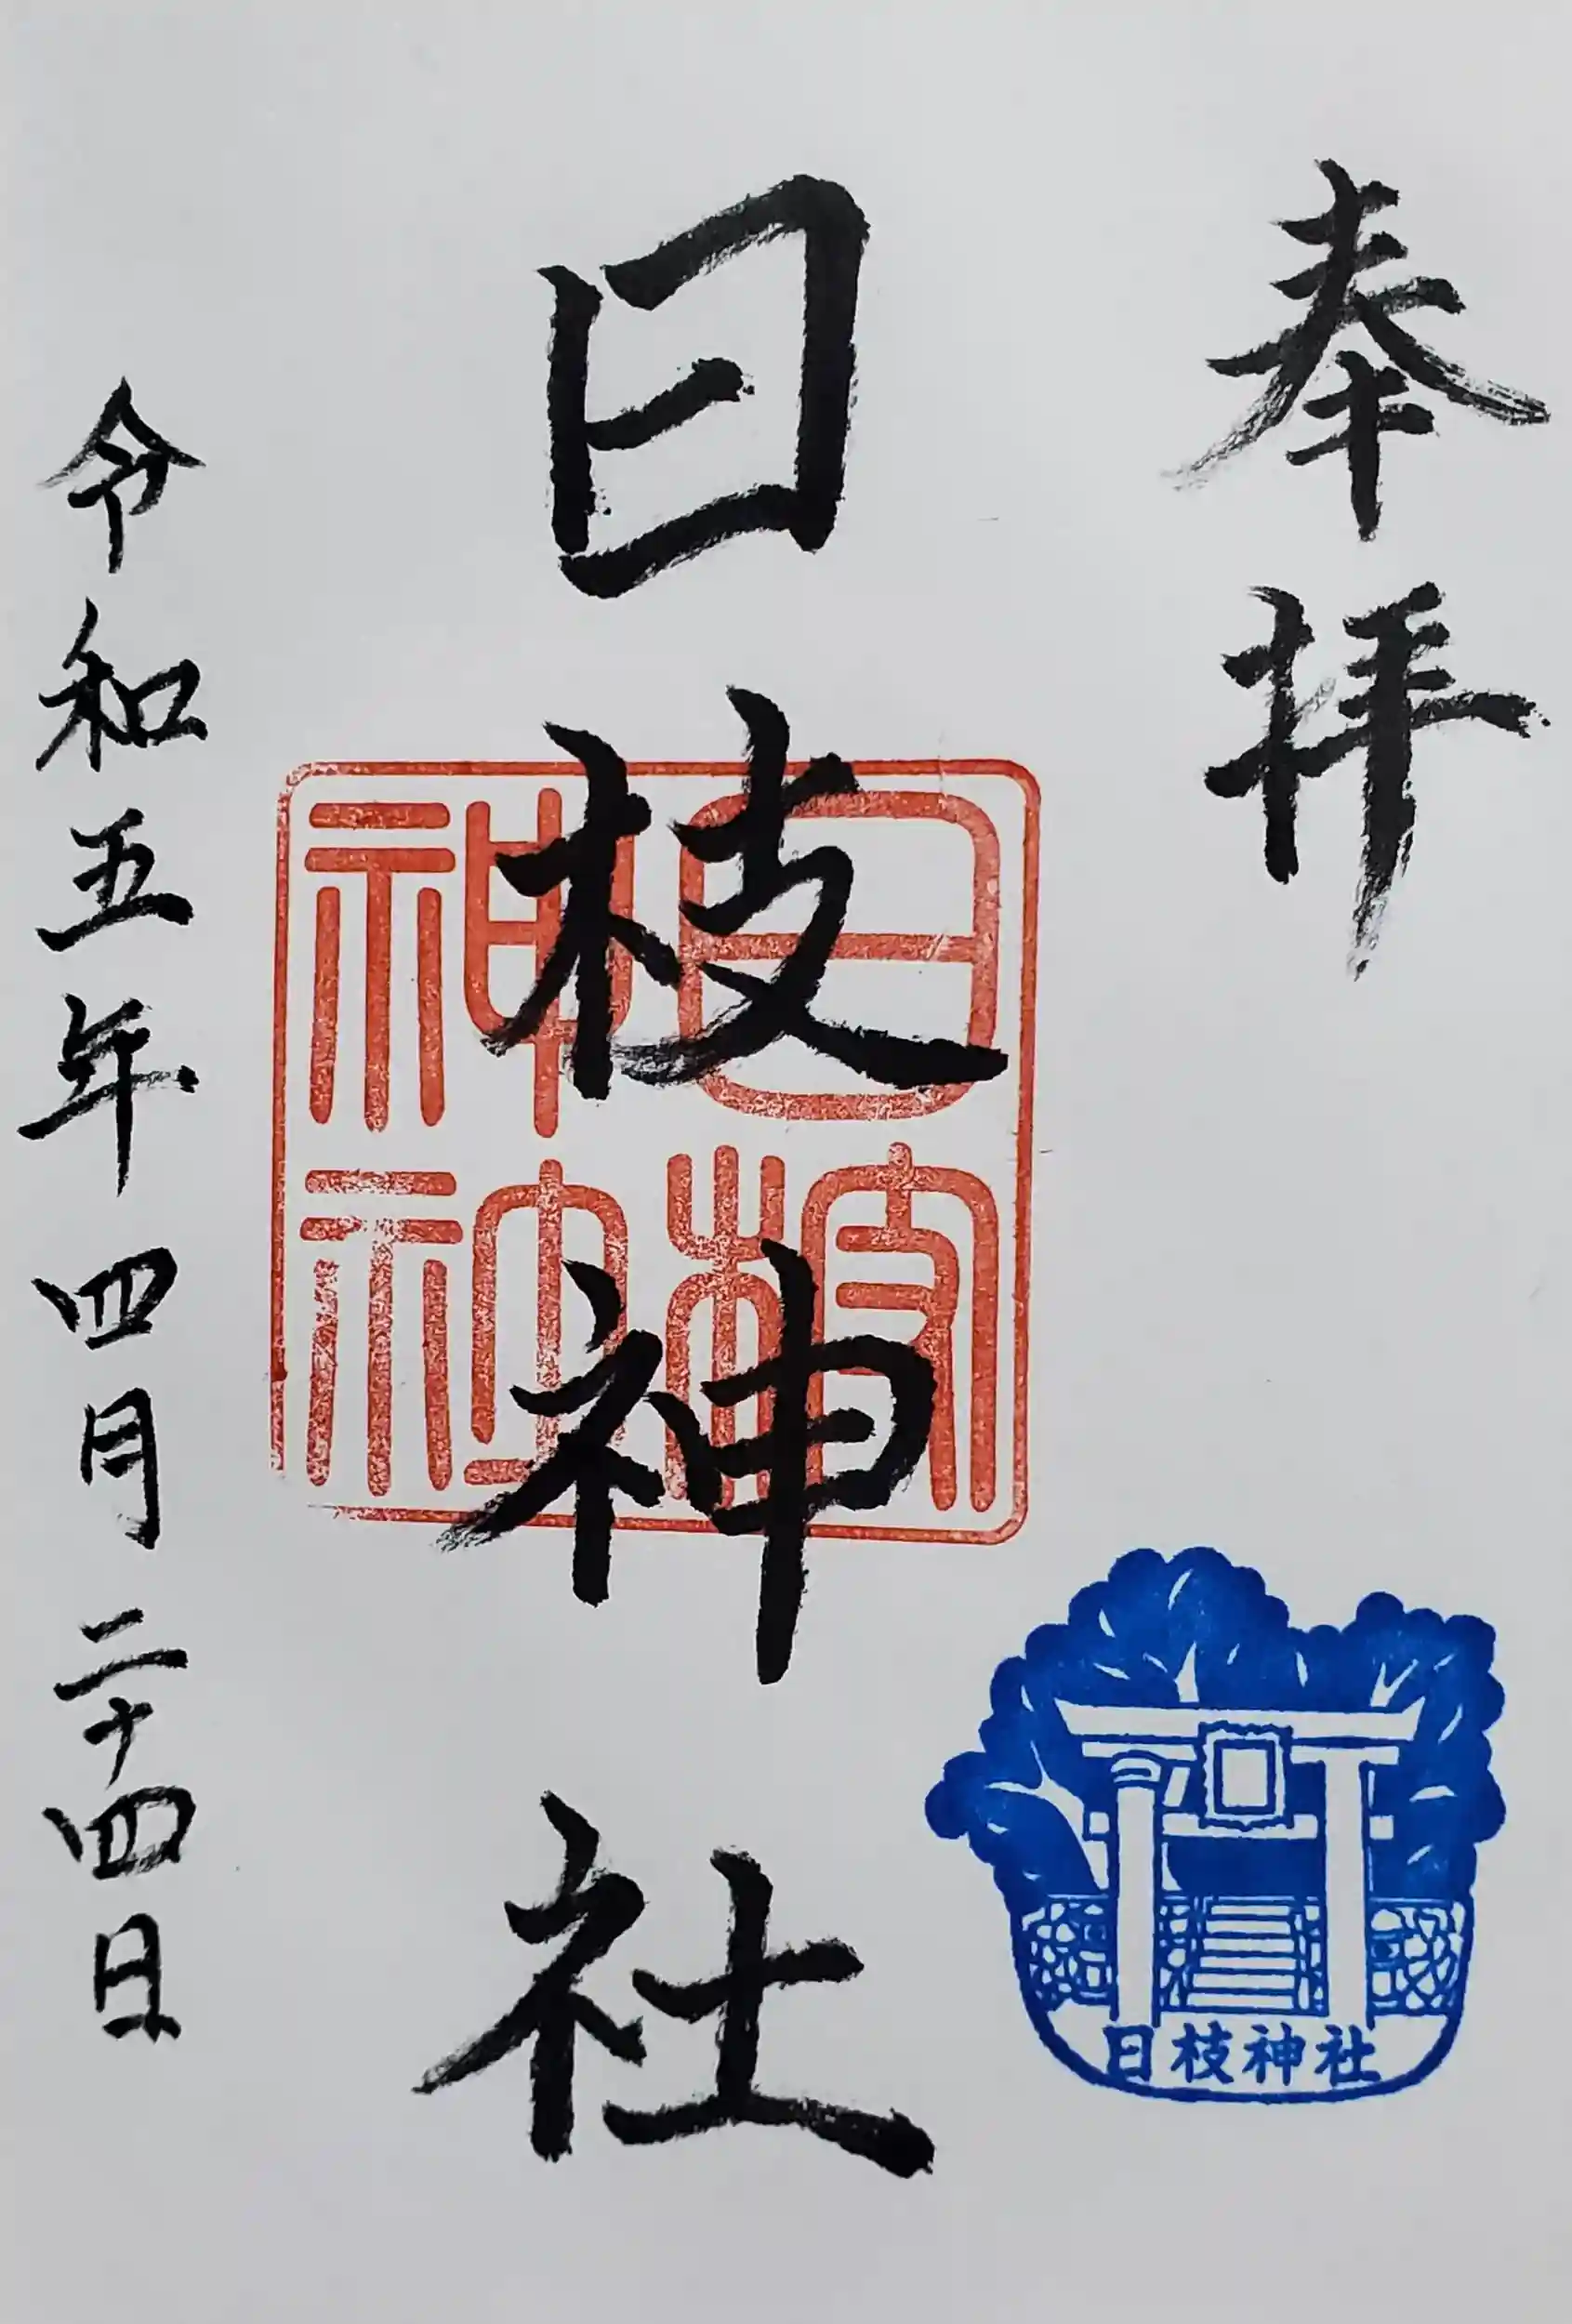 奉拝
日枝神社
日枝神社
令和五年四月二十四日
日枝神社